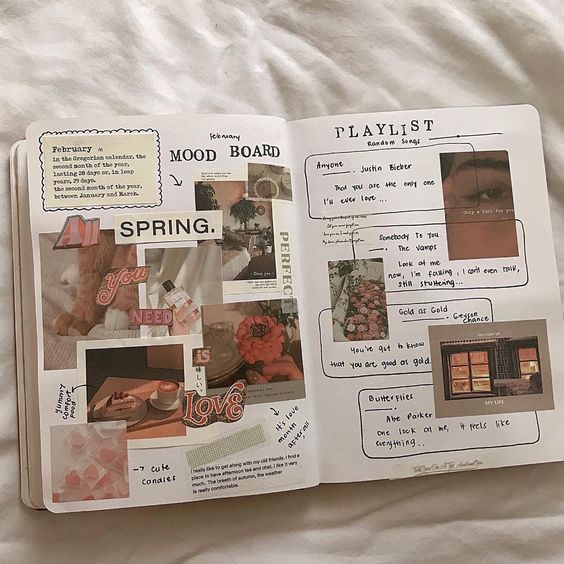 February n
in the Gregorian calendar, the
second month of the year,
lasting 28 days or, in leap
years, 29 days.
the second month of the year,
between January and March.
February
MOOD BOARD
All
SPRING.
PERFEC
You
NEED
is
LOVE
yummy
comfort
food
It's love
month
after all
→ cute
candles
I really like to get along with my old friends. I find a
place to have afternoon tea and chat. I like it very
much. The breath of autumn, the weather
is really comfortable.
PLAYLIST
Random Songs
Anyone.. Justin Bieber
That you are the only one
I'll ever love...
Only a fool for you
Somebody To You
The Vamps
Look at me
now, I'm falling, I can't even talk,
still stuttering...
Gold as Gold
Greyson
Chance
You've got to know
that you are good as gold.
YOU LIGHT UP
MY LIFE
Butterflies
Abe Parker
one look at me, it feels like
everything...